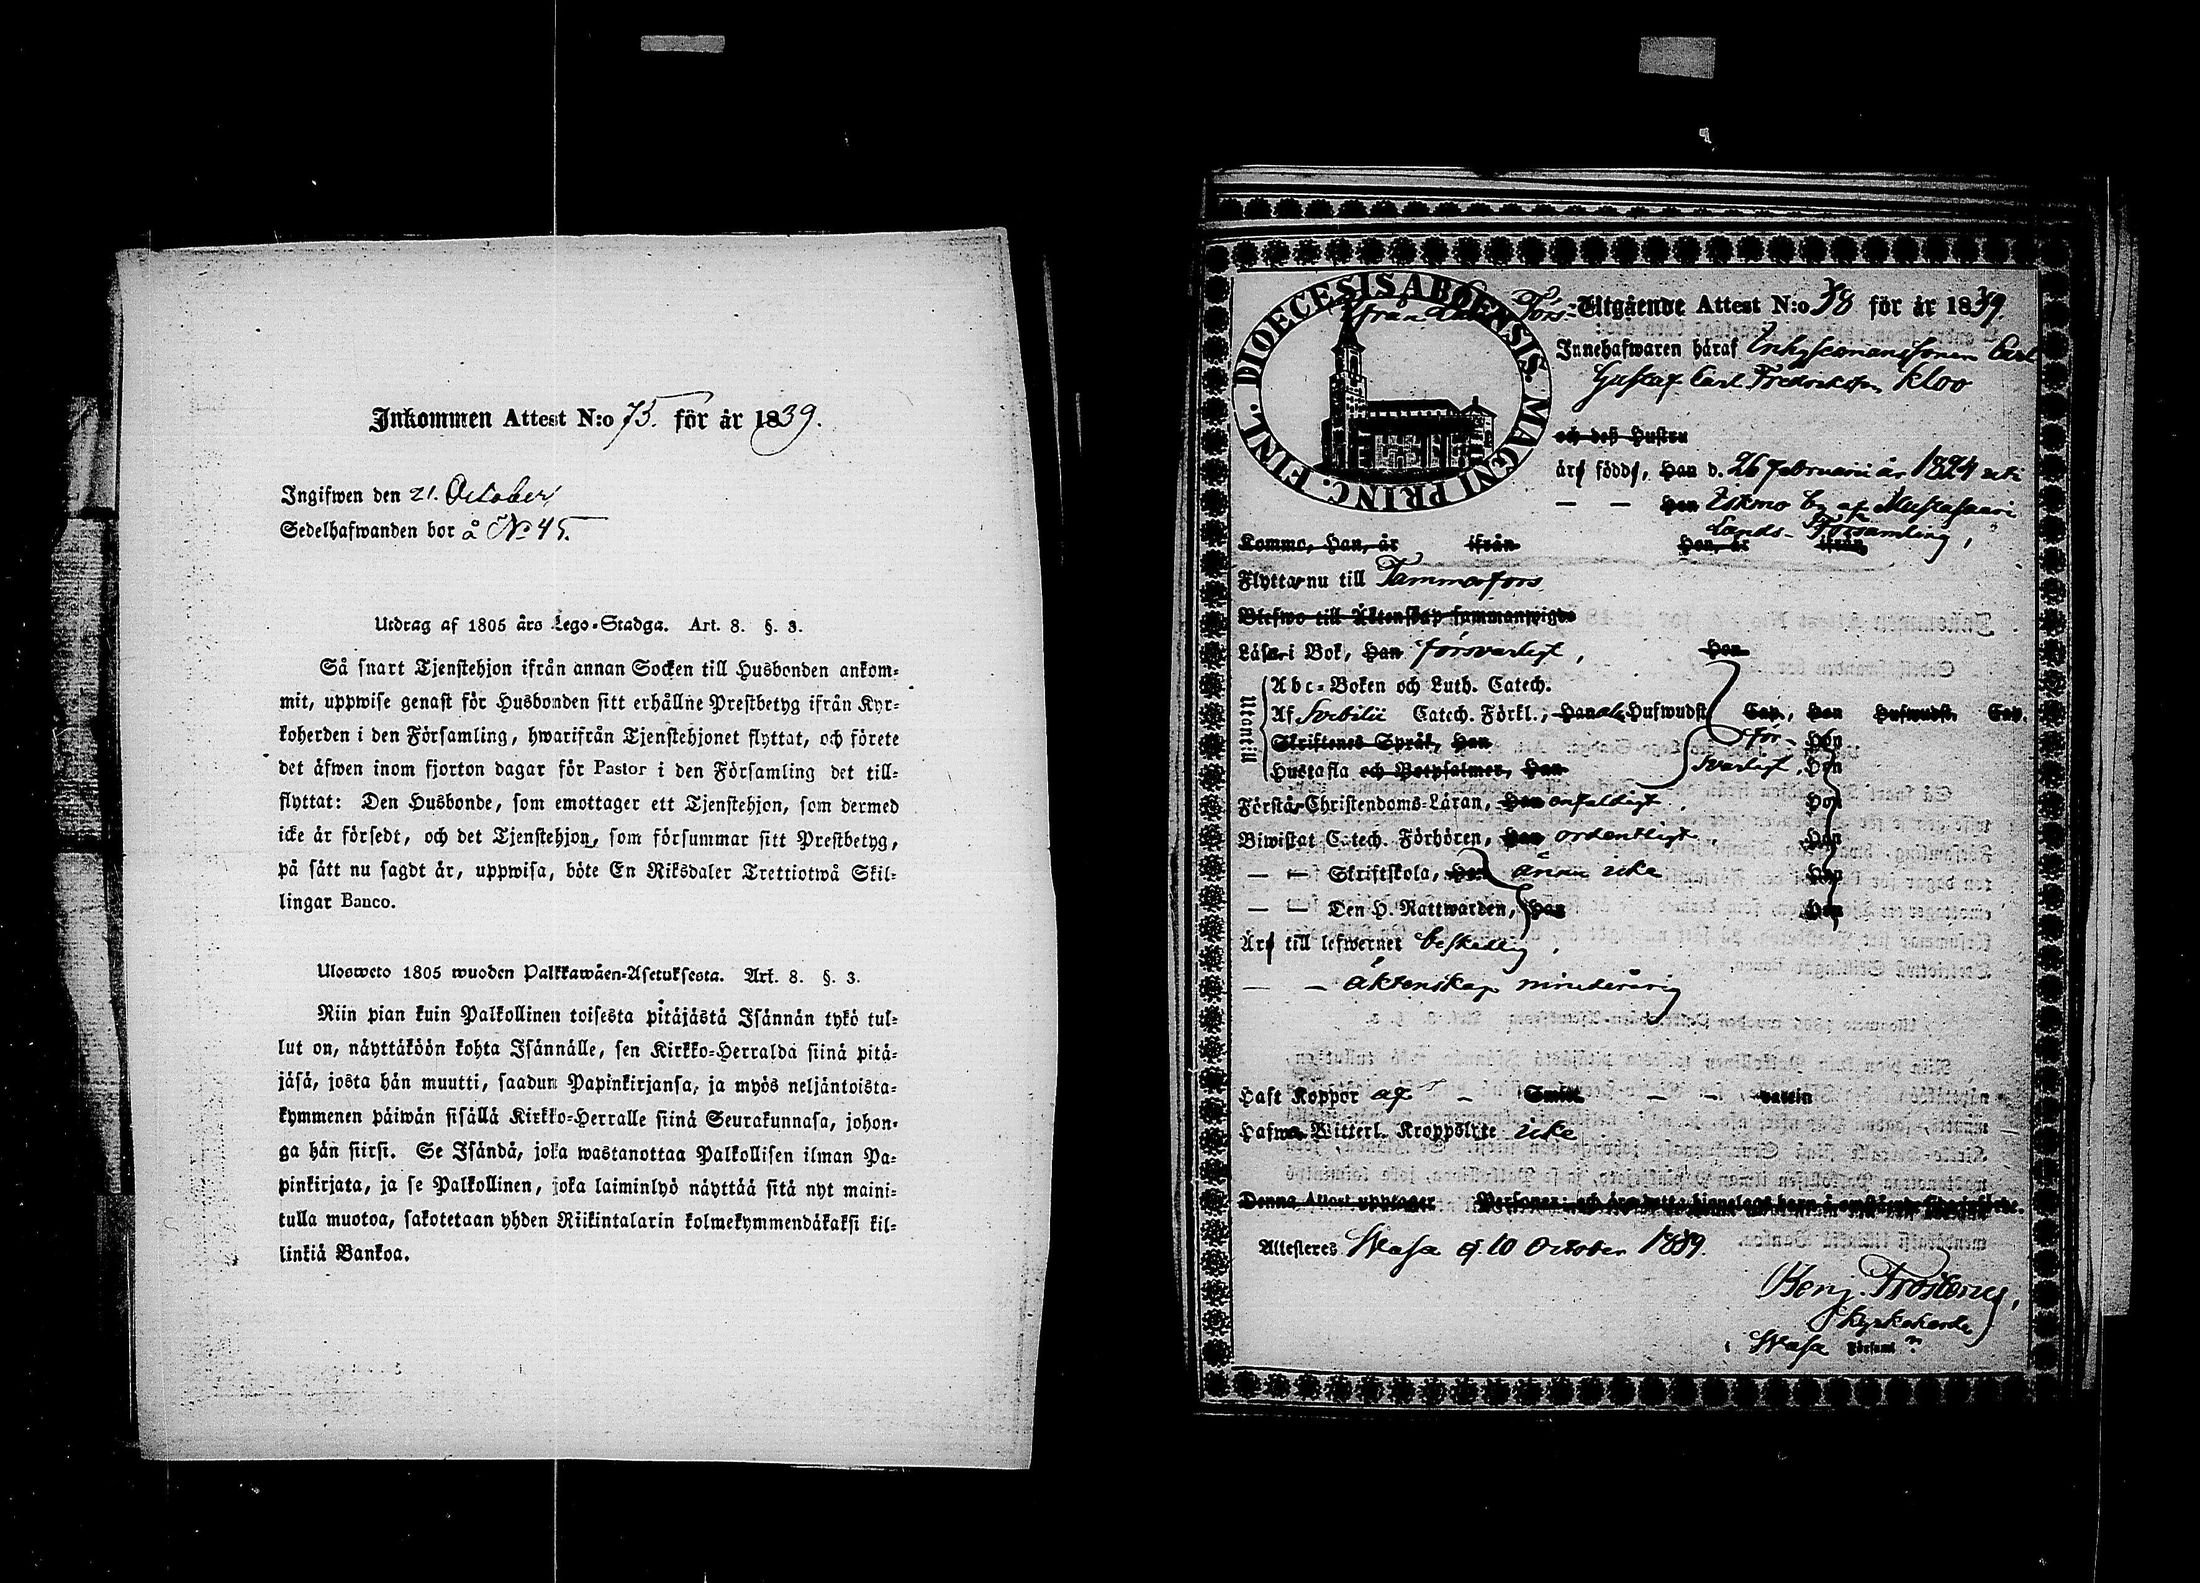 Inkommen Attest N:o 75. för år 1839.
Ingifwen den 21. October
Sedelhafwanden bor å No 45.
Utdrag af 1805 års Lego-Stadga. Art. 8. §. 3.
Så snart Tjenstehjon ifrån annan Socken till Husbonden ankom-
mit, uppwise genast för Husbonden sitt erhållne Prestbetyg ifrån Kyr-
koherden i den Församling, hwarifrån Tjenstehjonet flyttat, och förete
det äfwen inom fjorton dagar för Pastor i den Församling det till-
flyttat: Den Husbonde, som emottager ett Tjenstehjon, som dermed
icke är försedt, och det Tjenstehjon, som försummar sitt Prestbetyg,
på sätt nu sagdt är, uppwisa, böte En Riksdaler Trettiotwå Skil-
lingar Banco.
Ulosweto 1805 wuoden Palkkawäen-Asetuksesta. Art. 8. §. 3.
Niin pian kuin Palkollinen toisesta pitäjästä Isännän tykö tul-
lut on, näyttäköön kohta Isännälle, sen Kirkko-Herralda siinä pitä-
jäsä, josta hän muutti, saadun Papinkirjansa, ja myös neljäntoista-
kymmenen päiwän sisällä Kirkko-Herralle siinä Seurakunnasa, johon-
ga hän siirsi. Se Isändä, joka wastanottaa Palkollisen ilman Pa-
pinkirjata, ja se Palkollinen, joka laiminlyö näyttää sitä nyt maini-
tulla muotoa, sakotetaan yhden Riikintalarin kolmekymmendäkaksi kil-
linkiä Bankoa.
DIOECESIS ABOËNSIS. MAGNI PRINC. FINL.
Utgående Attest N:o 38 för år 1839.
Innehafwaren häraf Inhysesmanssonen Carl
Gustaf Carl Fredriksson Kloo
och deß Hustru
äro födde, Han d. 26 februarii år 1824 uti
— — Hon Iskmo by af Mustasaari
Lands-Församling,
Kommo, Han, år ifrån Hon, år ifrån
Flytta nu till Tammerfors
Blefwo till Äktenskap sammanwigde
Läsa i Bok, Han försvarligt, Hon
Utantill
Abc-Boken och Luth. Catech.
Af Svebilii Catech. Förkl., Han alla Hufwudst. Cap., Hon Hufwudst. Cap.
Skriftenes Språk, Han för- Hon
Hustafla och Botpsalmer, Han svarligt, Hon
Förstå Christendoms-Läran, Han enfaldigt, Hon
Biwistat Catech. Förhören, Han ordentligt, Hon
— — Skriftskola, Han ännu icke Hon
— — Den H. Nattwarden, Han Hon
Äro till lefwernet beskedlig,
— — äktenskap minderårig
Haft Koppor af — Smitt — — vaccin
Hafwa Witterl. Kroppslyte icke
Denna Attest upptager Personer:
Attesteres Wasa d. 10 October 1839.
Benj. Frosterus,
Kyrkoherde
i Wasa Församl:n